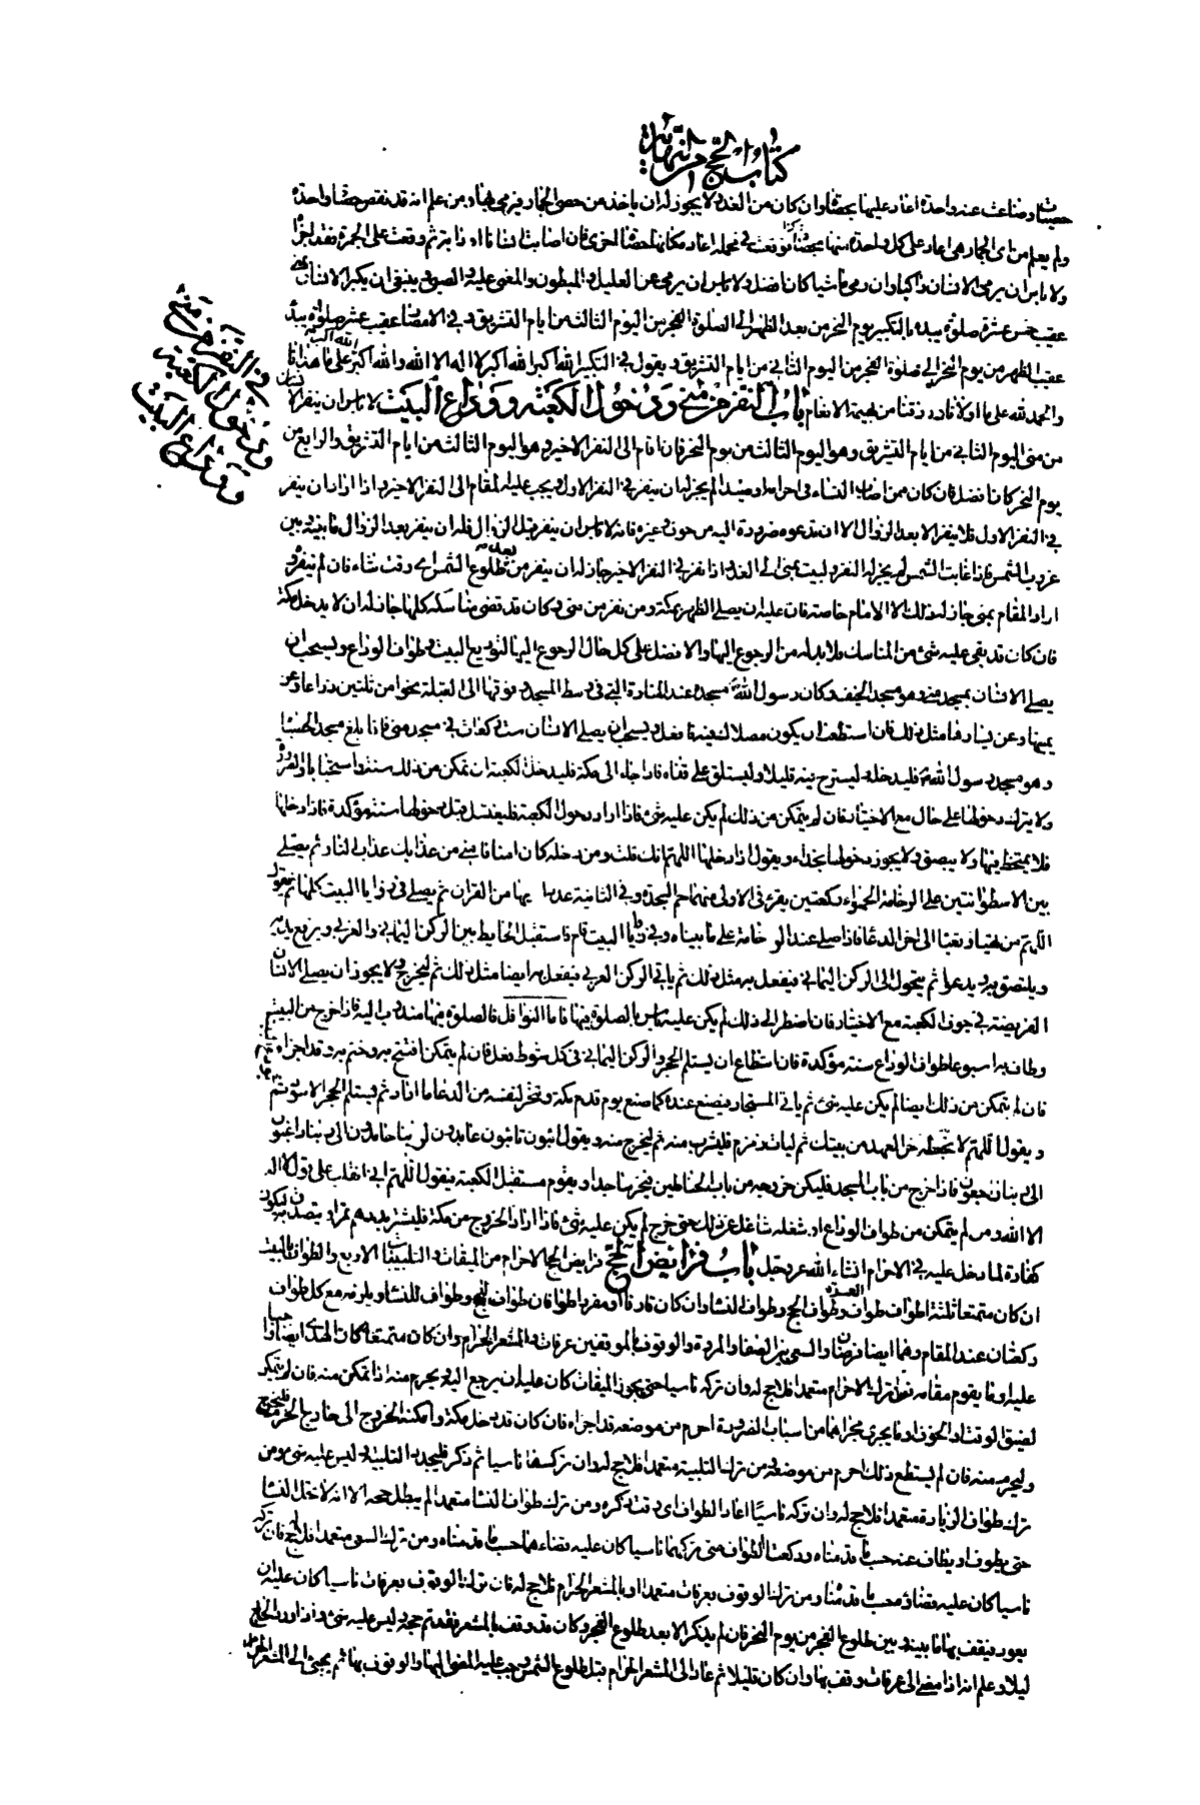 كتاب الحج من النهاية
حصيات وضاعت عنه واحدة اعاد عليها بحصاة وان كان من الغد ولا يجوز له ان ياخذ من حصى الجمار فيرمي بها ومن علم انه قد نقص حصاة واحدة
ولم يعلم من اى الجمار هى اعاد على كل واحدة منها بحصاة فان وقعت فى محمله اعاد مكانها حصاة اخرى فان اصابت انسانا او دابة ثم وقعت على الجمرة فقد اجزا
ولا باس ان يرمى الانسان راكبا وان رمى ماشيا كان افضل ولا باس ان يرمى عن العليل والمبطون والمغمى عليه والصبى وينبغى ان يكبر الانسان بمنى
عقيب خمس عشرة صلوة يبدء بالتكبير يوم النحر من بعد الظهر الى صلوة الفجر من اليوم الثالث من ايام التشريق وفى الامصار عقيب عشر صلوة يبدء
عقيب الظهر من يوم النحر الى صلوة الفجر من اليوم الثانى من ايام التشريق ويقول فى التكبير الله اكبر الله اكبر لا اله الا الله والله اكبر الله اكبر على ما هدانا
والحمد لله على ما اولانا ورزقنا من بهيمة الانعام باب النفر من منى ودخول الكعبة ووداع البيت لا باس ان ينفر الانسان
من منى اليوم الثانى من ايام التشريق وهو اليوم الثالث من يوم النحر فان اقام الى النفر الاخير وهو اليوم الثالث من ايام التشريق والرابع من
يوم النحر كان افضل فان كان ممن اصاب النساء فى احرامه او صيدا لم يجز له ان ينفر فى النفر الاول ويجب عليه المقام الى النفر الاخير واذا اراد ان ينفر
فى النفر الاول فلا ينفر الا بعد الزوال الا ان تدعوه ضرورة اليه من خوف وغيره فانه لا باس ان ينفر قبل الزوال وله ان ينفر بعد الزوال ما بينه وبين
غروب الشمس فاذا غابت الشمس لم يجز له النفر وليبت بمنى الى الغد واذا نفر فى النفر الاخير جاز له ان ينفر من بعد طلوع الشمس اى وقت شاء فان لم ينفر و
اراد المقام بمنى جاز له ذلك الا الامام خاصة فان عليه ان يصلى الظهر بمكة ومن نفر من منى وكان قد قضى مناسكه كلها جاز له ان لا يدخل مكة
فان كان قد بقى عليه شئ من المناسك فلا بد له من الرجوع اليها والافضل على كل حال الرجوع اليها لتوديع البيت وطواف الوداع ويستحب ان
يصلى الانسان بمسجد منى وهو مسجد الخيف وكان رسول الله ص مسجده عند المنارة التى فى وسط المسجد وفوقها الى القبلة نحوا من ثلثين ذراعا وعن
يمينها وعن يسارها مثل ذلك فان استطعت ان يكون مصلاك فيه فافعل ويستحب ان يصلى الانسان ست ركعات فى مسجد منى فاذا بلغ مسجد الحصبا
وهو مسجد رسول الله ص فليدخله وليسترح فيه قليلا وليستلق على قفاه فاذا جاء الى مكة فليدخل الكعبة ان تمكن من ذلك سنة واستحبابا والصرورة
ولا يترك دخولها على حال مع الاختيار فان لم يتمكن من ذلك لم يكن عليه شئ فاذا اراد دخول الكعبة فليغتسل قبل دخولها سنة مؤكدة فاذا دخلها
فلا يمتخط فيها ولا يبصق ولا يجوز دخولها بحذاء ويقول اذا دخلها اللهم انك قلت ومن دخله كان امنا فامنى من عذابك عذاب النار ثم يصلى
بين الاسطوانتين على الرخامة الحمراء ركعتين يقرء فى الاولى منهما حم السجدة وفى الثانية عدد ايها من القران ثم يصلى فى زوايا البيت كلها ثم يقول
اللهم من تهيا وتعبا الى اخر الدعا فاذا صلى عند الرخامة على ما بيناه وفى زوايا البيت قام فاستقبل الحايط بين الركن اليمانى والغربى ويرفع يديه
ويلتصق به ويدعوا ثم يتحول الى الركن اليمانى فيفعل به مثل ذلك ثم ياتى الركن الغربى فيفعل به ايضا مثل ذلك ثم ليخرج ولا يجوز ان يصلى الانسان
الفريضة فى جوف الكعبة مع الاختيار فان اضطر الى ذلك لم يكن عليه باس بالصلوة فيها فاما النوافل فالصلوة فيها مندوب اليه فاذا خرج من البيت
وطاف به اسبوعا طواف الوداع سنة مؤكدة فان استطاع ان يستلم الحجر والركن اليمانى فى كل شوط فعل فان لم يتمكن افتتح به وختم به وقد اجزاه
فان لم يتمكن من ذلك ايضا لم يكن عليه شئ ثم ياتى المستجار ويصنع عنده كما صنع يوم قدم مكة وتخير لنفسه من الدعاء ما اراد ثم يستلم الحجر الاسود ثم
ويقول اللهم لا تجعله اخر العهد من بيتك ثم ليات زمزم فليشرب منه ثم ليخرج منه ويقول ائبون تائبون عابدون لربنا حامدون الى ربنا راغبون
الى ربنا راجعون فاذا خرج من باب المسجد فليكن خروجه من باب الحناطين فيخر ساجدا ويقوم مستقبل الكعبة فيقول اللهم انى انقلب على قول لا اله
الا الله ومن لم يتمكن من طواف الوداع او شغله شاغل عن ذلك حتى خرج لم يكن عليه شئ فاذا اراد الخروج من مكة فليشتر بدرهم تمرا ويتصدق به ليكون
كفارة لما دخل عليه فى الاحرام انشاء الله عز وجل باب فرائض الحج فرايض الحج الاحرام من الميقات والتلبيات الاربع والطواف بالبيت
ان كان متمتعا ثلثة اطواف طواف العمرة وطواف الحج وطواف النساء وان كان قارنا او مفردا طوافان طواف الحج وطواف للنساء ويلزمه مع كل طواف
ركعتان عند المقام وهما ايضا فرضان والسعى بين الصفا والمروة والوقوف بالموقفين عرفات والمشعر الحرام وان كان متمتعا كان الهدى ايضا واجبا
عليه او ما يقوم مقامه فمن ترك الاحرام متعمدا فلا حج له وان تركه ناسيا حتى يجوز الميقات كان عليه ان يرجع اليه ويحرم منه اذا تمكن منه فان لم يتمكن
لضيق الوقت او الخوف او ما يجرى مجراهما من اسباب الضرورة احرم من موضعه وقد اجزاه فان كان قد دخل مكة وامكنه الخروج الى خارج الحرم فليخرج
وليحرم منه فان لم يستطع ذلك احرم من موضعه ومن ترك التلبية متعمدا فلا حج له وان تركها ناسيا ثم ذكر فليجدد التلبية وليس عليه شئ ومن
ترك طواف الزيارة متعمدا فلا حج له وان تركه ناسيا اعاد الطواف اى وقت ذكره ومن ترك طواف النسا متعمدا لم يبطل حجه الا انه لا تحل له النسا
حتى يطوف او يطاف عنه حسب ما قدمناه وركعتا الطواف متى تركهما ناسيا كان عليه قضاءهما حسب ما قدمناه ومن ترك السعى متعمدا فلا حج له فان تركه
ناسيا كان عليه قضاؤه حسب ما قدمناه ومن ترك الوقوف بعرفات متعمدا او بالمشعر الحرام فلا حج له فان ترك الوقوف بعرفات ناسيا كان عليه ان
يعود فيقف بها ما بينه وبين طلوع الفجر من يوم النحر فان لم يذكر الا بعد طلوع الفجر وكان قد وقف بالمشعر فقد تم حجه وليس عليه شئ واذا ورد الحاج
ليلا وعلم انه اذا مضى الى عرفات وقف بها وان كان قليلا ثم عاد الى المشعر الحرام قبل طلوع الشمس وجب عليه المضى اليها والوقوف بها ثم يجئ الى المشعر الحرام
فى النفر من منى
ودخول الكعبة
ووداع البيت